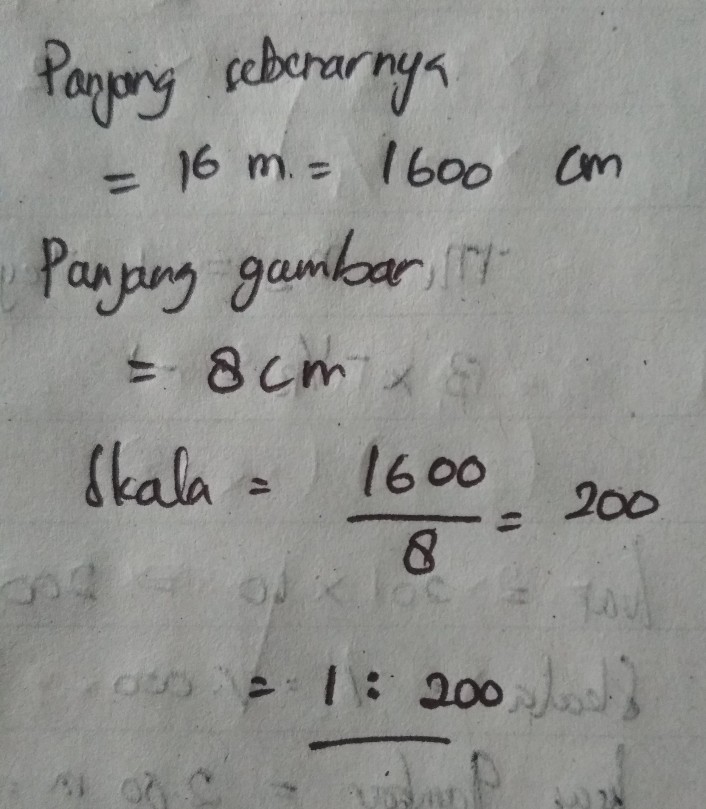 Panjang sebenarnya
= 16 m. = 1600 cm
Panjang gambar
= 8 cm
Skala = 1600/8 = 200
= 1 : 200